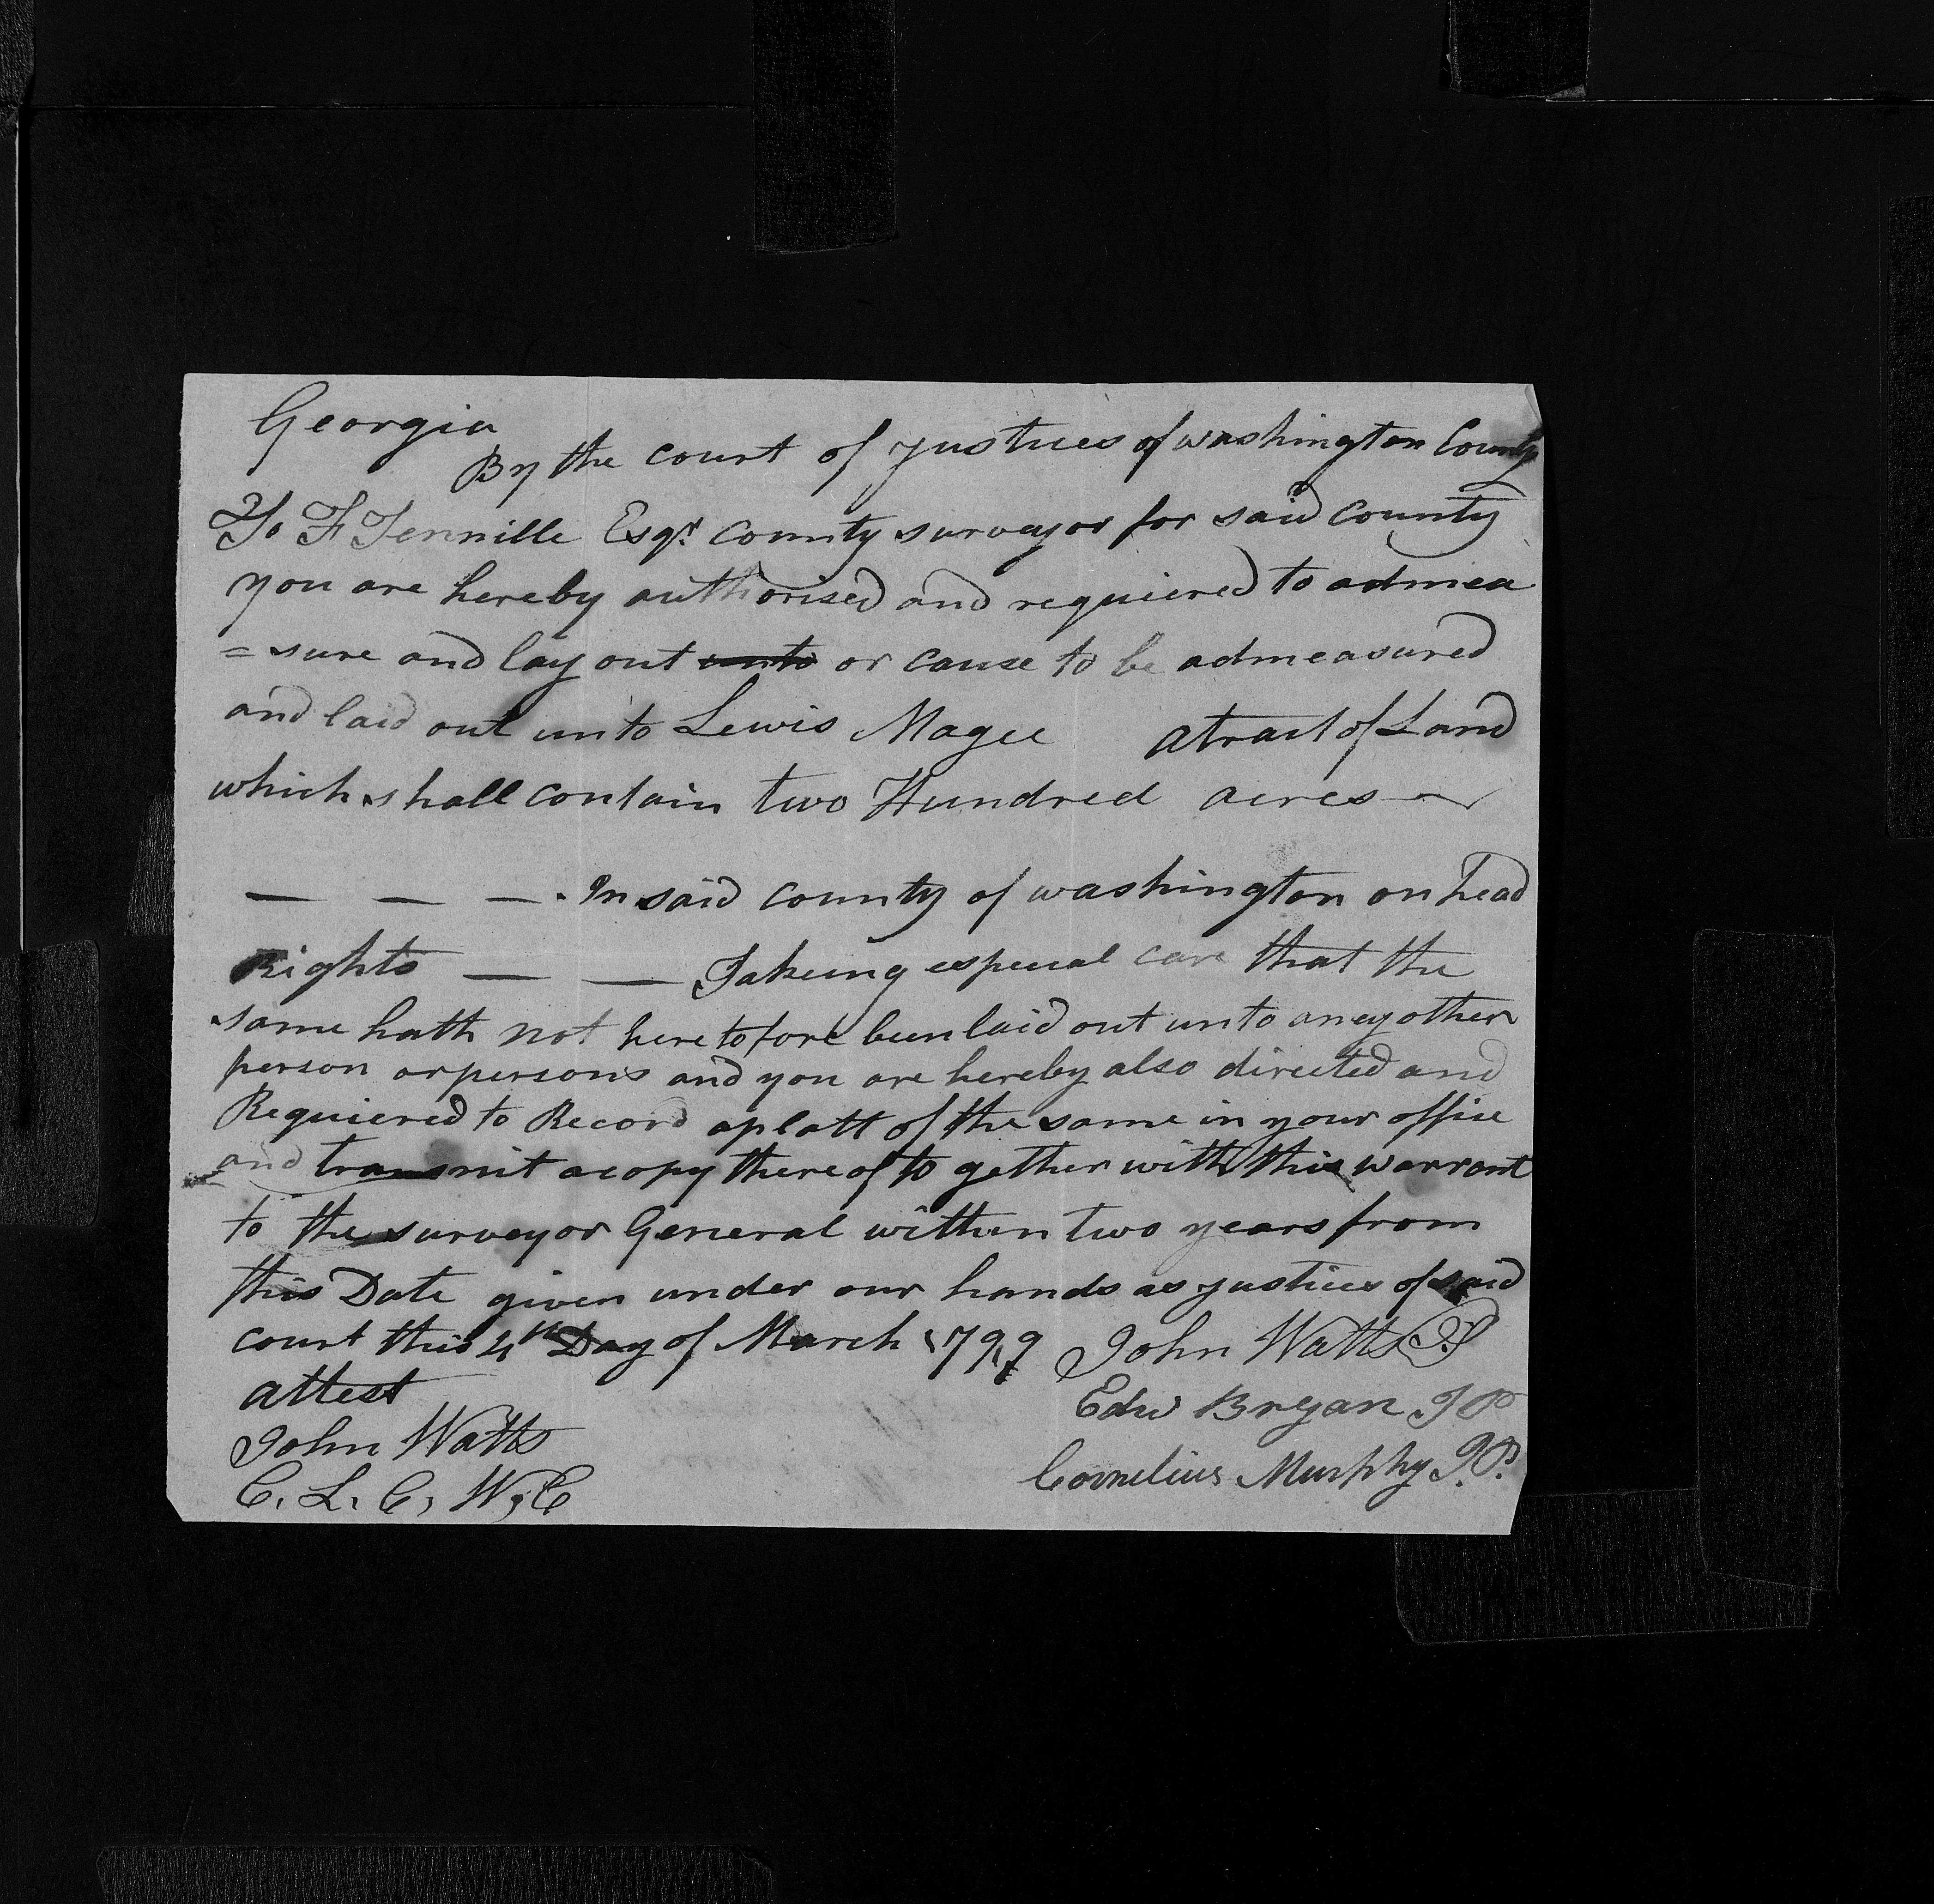 Georgia
By the court of Justices of washington County
To F Tennille Esqr. County surveyor for said County
you are hereby authorised and requiered to admea
=sure and lay out unto or cause to be admeasured
and laid out unto Lewis Magee atract of Land
which shall contain two Hundred acres
— — — . In said county of washington on head
Rights — — Takeing especial care that the
same hath not heretofore been laid out unto aney other
person or persons and you are hereby also directed and
Requiered to Record aplatt of the same in your office
and transmit acopy thereof to gether with this warrant
to the surveyor General within two years from
this Date given under our hands as justices of said
court this 4th Day of March 1799 John Watts JP
attest Edw Bryan JP
John Watts Cornelius Murphy J.P.
C. L. C, W, C